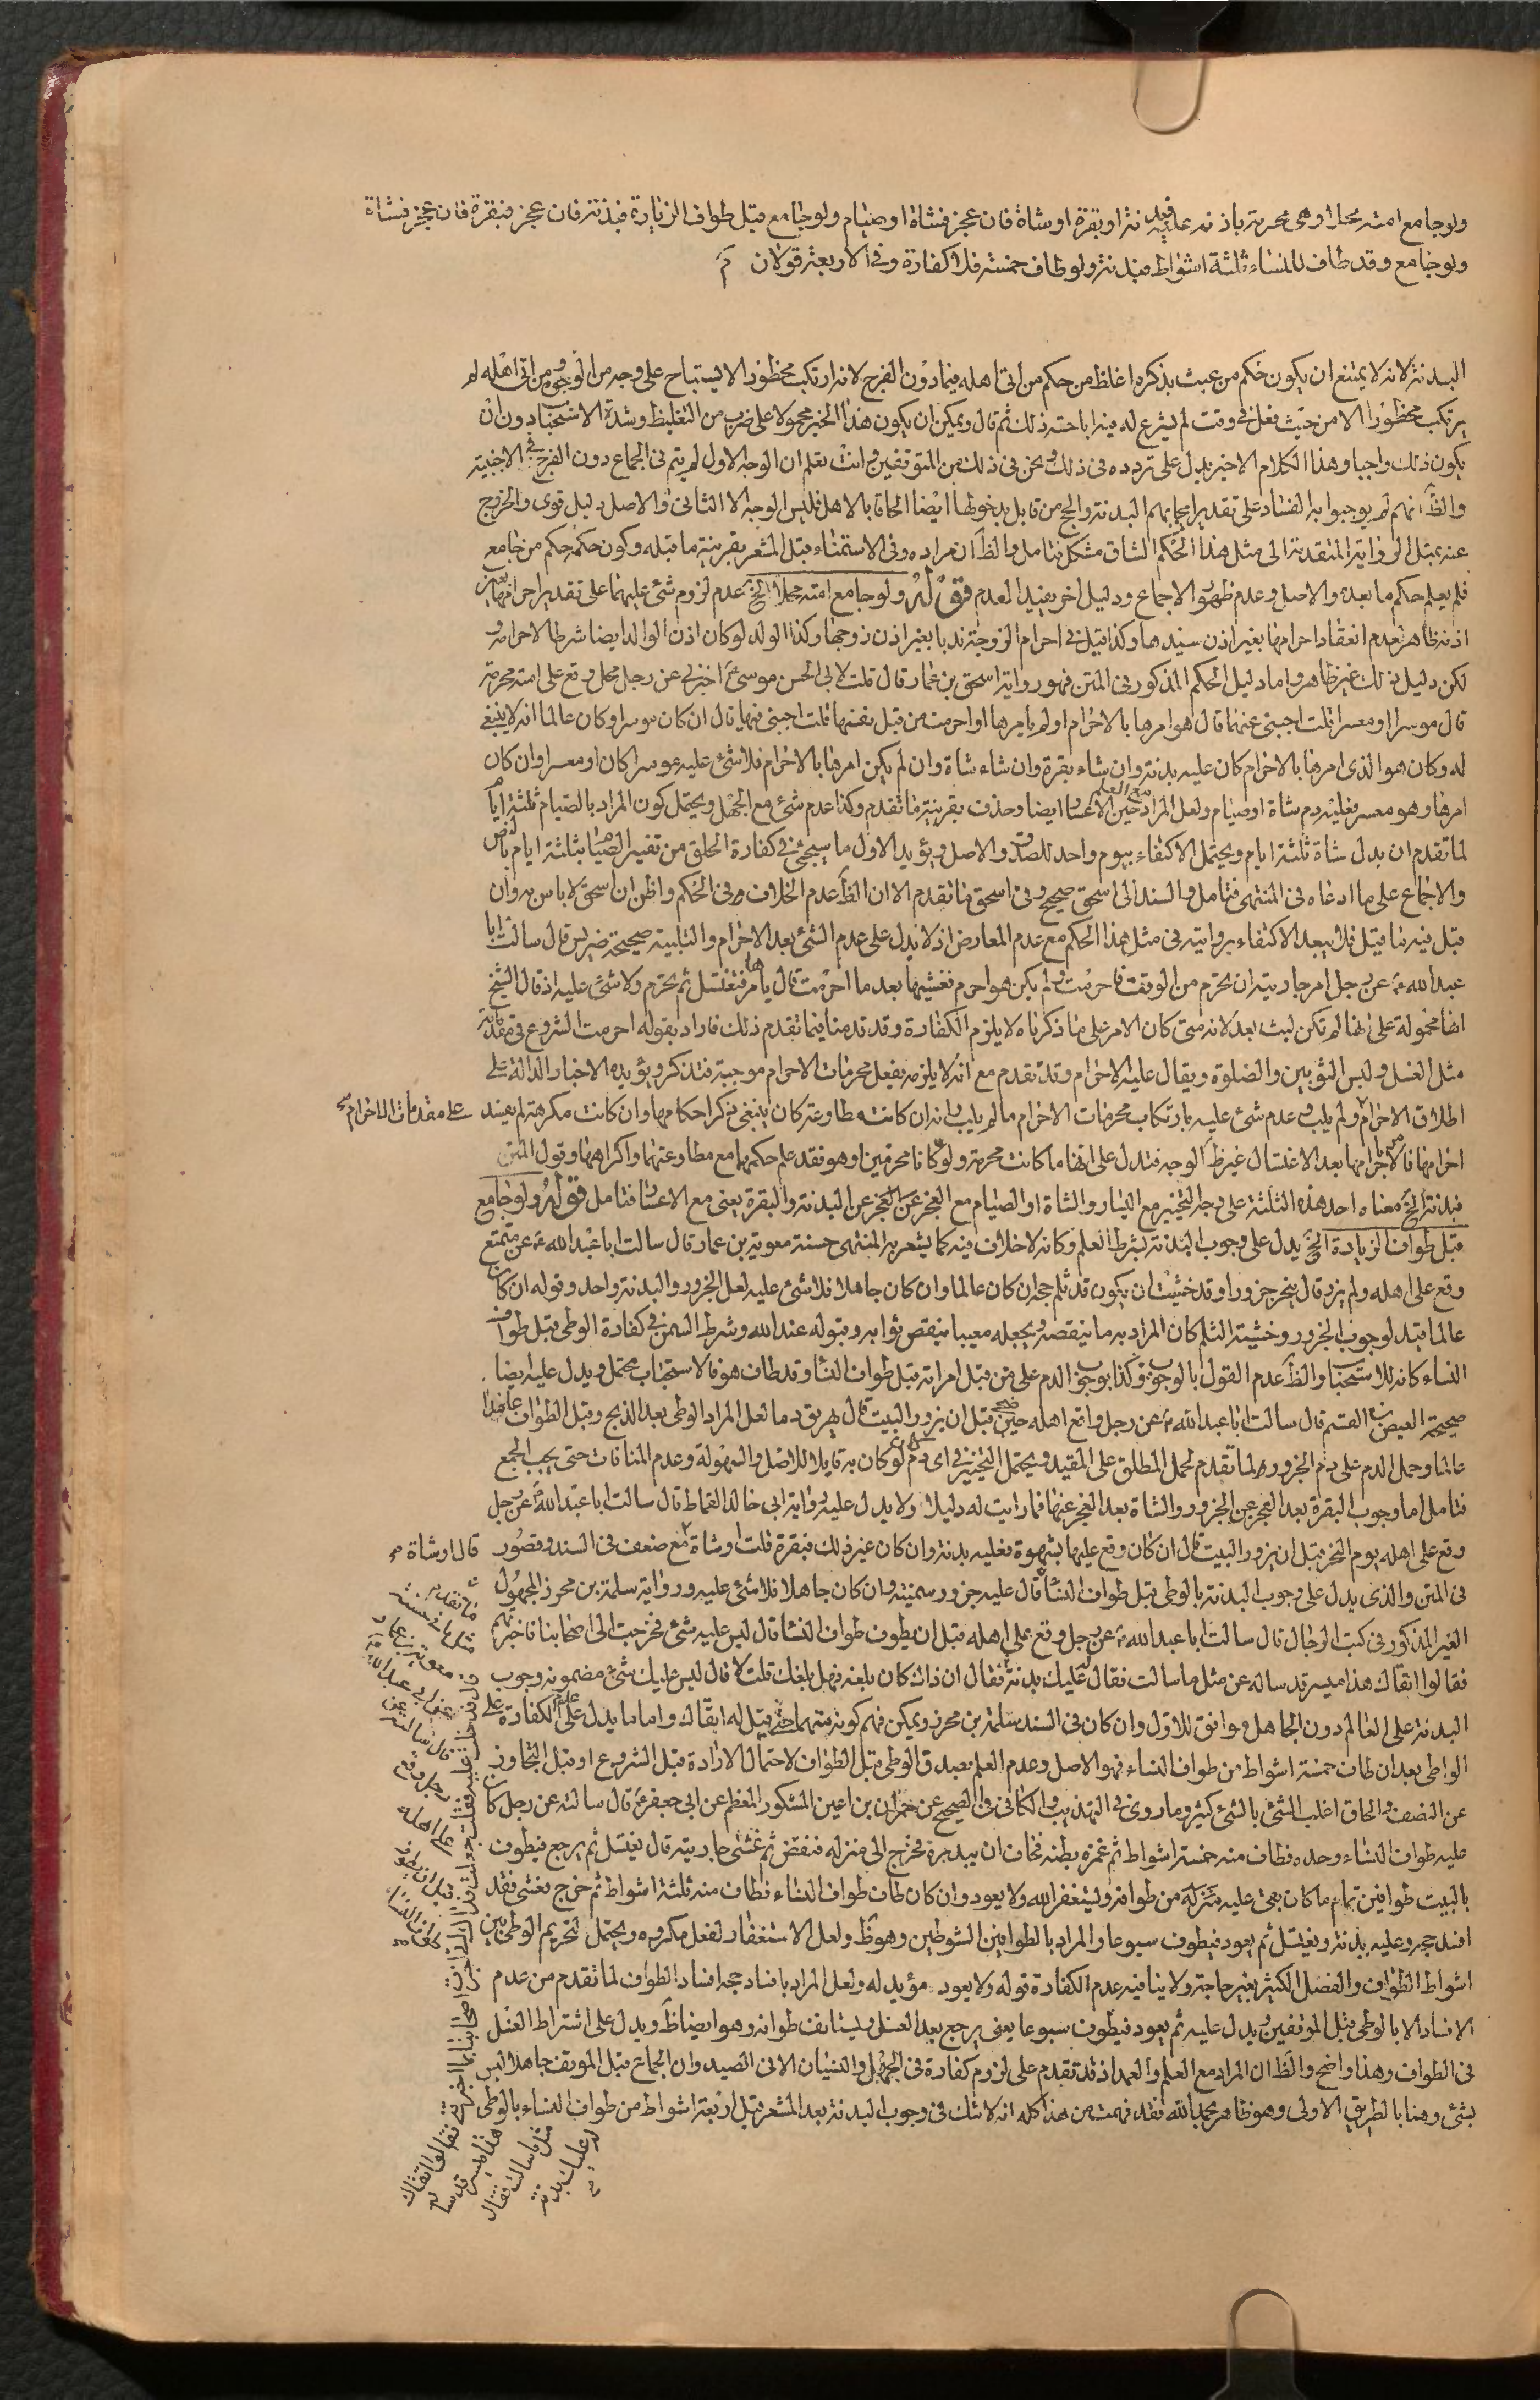 ولو جامع امته محلا وهى محرمة باذنه فعليه بدنة او بقرة او شاة فان عجز فشاة او صيام ولو جامع قبل طواف الزيارة فبدنة فان عجز فبقرة فان عجز فشاة
ولو جامع وقد طاف للنساء ثلثة اشواط فبدنة ولو طاف خمسة فلا كفارة وفى الاربعة قولان
البدنة لانه لا يمتنع ان يكون حكم من عبث بذكره اغلظ من حكم من اتى اهله فيما دون الفرج لانه ارتكب محظورا لا يستباح على وجه من الوجوه ومن اتى اهله لم
يرتكب محظورا الا من حيث فعل فى وقت لم يشرع له فيه اباحة ذلك ثم قال ويمكن ان يكون هذا الخبر محمولا على ضرب من التغليظ وشدة الاستحباب دون ان
يكون ذلك واجبا وهذا الكلام الاخير يدل على تردده فى ذلك ونحن فى ذلك من المتوقفين وانت تعلم ان الوجه الاول لم يتم فى الجماع دون الفرج فى الاجنبية
والظ انهم لم يوجبوا به الفساد على تقدير ايجابهم البدنة والحج من قابل بدخولها ايضا الحاقا بالاهل فليس الوجه الا الثانى والاصل دليل قوى والخروج
عنه بمثل الرواية المتقدمة الى مثل هذا الحكم الشاق مشكل فتامل والظ ان مراده وفى الاستمناء قبل المشعر بقرينة ما قبله وكون حكمه حكم من جامع
فلم يعلم حكم ما بعده والاصل وعدم ظهور الاجماع ودليل اخر يفيد العدم قوله ولو جامع امته محلا الخ عدم لزوم شئ عليهما على تقدير احرامها بغير
اذنه ظاهر لعدم انعقاد احرامها بغير اذن سيدها وكذا قيل فى احرام الزوجة ندبا بغير اذن زوجها وكذا الولد لو كان اذن الوالد ايضا شرطا لاحرامه
لكن دليل ذلك غير ظاهر واما دليل الحكم المذكور فى المتن فهو رواية اسحق بن عمار قال قلت لابى الحسن موسى ع اخبرنى عن رجل محل وقع على امته محرمة
قال موسرا او معسرا قلت اجبنى عنهما قال هو امرها بالاحرام او لم يامرها او احرمت من قبل نفسها قلت اجبنى فيها قال ان كان موسرا وكان عالما انه لا ينبغى
له وكان هو الذى امرها بالاحرام كان عليه بدنة وان شاء بقرة وان شاء شاة وان لم يكن امرها بالاحرام فلا شئ عليه موسرا كان او معسرا وان كان
امرها وهو معسر فعليه دم شاة او صيام ولعل المراد حين الاعسار مع العلم ايضا وحذف بقرينة ما تقدم وكذا عدم شئ مع الجهل ويحتمل كون المراد بالصيام ثلثة ايام
لما تقدم ان بدل شاة ثلثة ايام ويحتمل الاكتفاء بيوم واحد للصدق والاصل ويؤيد الاول ما سيجئ فى كفارة الحلق من تفسير الصيام بثلثة ايام بالنص
والاجماع على ما ادعاه فى المنتهى فتامل والسند الى اسحق صحيح وفى اسحق ما تقدم الا ان الظ عدم الخلاف فى الحكم واظن ان اسحق لا باس به وان
قيل فيه ما قيل فلا يبعد الاكتفاء بروايته فى مثل هذا الحكم مع عدم المعارض اذ لا يدل على عدم الشئ بعد الاحرام والتلبية صحيحة ضريس قال سالت ابا
عبد الله ع عن رجل امر جاريته ان تحرم من الوقت فاحرمت ولم يكن هو احرم فغشيها بعد ما احرمت قال يامرها فتغتسل ثم تحرم ولا شئ عليه اذ قال الشيخ
انها محمولة على انها لم تكن لبت بعد لانه متى كان الامر على ما ذكرناه لا يلزم الكفارة وقد قدمنا فيما تقدم ذلك فاراد بقوله احرمت الشروع فى مقدماته
مثل الغسل ولبس الثوبين والصلوة ويقال عليه الاحرام وقد تقدم مع انه لا يلزمه بفعل محرمات الاحرام موجبة فتذكر ويؤيده الاخبار الدالة على
اطلاق الاحرام ولم يلب وعدم شئ عليه بارتكاب محرمات الاحرام ما لم يلب وانه ان كانت مطاوعة كان ينبغى ذكر احكامها وان كانت مكرهة لم يفسد على مقدمات الاحرام صح
احرامها فالامر باحرامها بعد الاغتسال غير ظ الوجه فتدل على انها ما كانت محرمة ولو كانا محرمين او هو فقد علم حكمهما مع مطاوعتهما واكراهها وقول المتن
فبدنة الخ معناه احد هذه الثلثة على وجه التخيير مع اليسار والشاة او الصيام مع العجز عن العجز عن البدنة والبقرة يعنى مع الاعسار فتامل قوله ولو جامع
قبل طواف الزيارة الخ يدل على وجوب البدنة بشرط العلم وكانه لا خلاف فيه كما يشعر به المنتهى حسنة معوية بن عمار قال سالت ابا عبد الله ع عن متمتع
وقع على اهله ولم يزر قال ينحر جزورا وقد خشيت ان يكون قد ثلم حجه ان كان عالما وان كان جاهلا فلا شئ عليه لعل الجزور والبدنة واحد وقوله ان كان
عالما قيد لوجوب الجزور وخشية الثلم كان المراد به ما ينقصه ويجعله معيبا ينقص ثوابه وقبوله عند الله وشرط السمن فى كفارة الوطى قبل طواف
النساء كانه للاستحباب والظ عدم القول بالوجوب وكذا بوجوب الدم على من قبل امراته قبل طواف النساء وقد طاف هو فالاستحباب محتمل ويدل عليه ايضا
صحيحة العيص بن القسم قال سالت ابا عبد الله ع عن رجل واقع اهله حين ضحى قبل ان يزور البيت قال يهريق دما لعل المراد الوطى بعد الذبح وقبل الطواف عامدا
عالما وحمل الدم على دم الجزور لما تقدم لحمل المطلق على المقيد ويحتمل التخيير فى اى دم كان لو كان به قايلا للاصل والسهولة وعدم المنافات حتى يجب الجمع
فتامل اما وجوب البقرة بعد العجز عن الجزور والشاة بعد العجز عنها فما رايت له دليلا ولا يدل عليه رواية ابى خالد القماط قال سالت ابا عبد الله ع عن رجل
وقع على اهله يوم النحر قبل ان يزور البيت قال ان كان وقع عليها بشهوة فعليه بدنة وان كان غير ذلك فبقرة قلت او شاة مع ضعف فى السند وقصور قال او شاة صح
فى المتن والذى يدل على وجوب البدنة بالوطى قبل طواف النساء قال عليه جزور سمينة وان كان جاهلا فلا شئ عليه ورواية سلمة بن محرز المجهول
الغير المذكور فى كتب الرجال قال سالت ابا عبد الله ع عن رجل وقع على اهله قبل ان يطوف طواف النساء قال ليس عليه شئ فخرجت الى اصحابنا فاخبرتهم
فقالوا اتقاك هذا ميسر قد ساله عن مثل ما سالت فقال له عليك بدنة فقال ان ذاك كان بلغه فهل بلغك قلت لا قال ليس عليك شئ مضمونه وجوب
البدنة على العالم دون الجاهل موافق للاول وان كان فى السند سلمة بن محرز ويمكن فهم كونه متهما حتى قيل له اتقاك واما ما يدل على عدم الكفارة على
الواطى بعد ان طاف خمسة اشواط من طواف النساء فهو الاصل وعدم العلم بصدق الوطى قبل الطواف لاحتمال الارادة قبل الشروع او قبل التجاوز
عن النصف والحاق اغلب الشئ بالشئ كثير وما روى فى التهذيب والكافى فى الصحيح عن حمران بن اعين المشكور المعظم عن ابى جعفر ع قال سالته عن رجل كان
عليه طواف النساء وحده فطاف منه خمسة اشواط ثم غمزه بطنه فخاف ان يبدره فخرج الى منزله فنفض ثم غشى جاريته قال يغتسل ثم يرجع فيطوف
بالبيت طوافين تمام ما كان بقى عليه من طوافه ويستغفر الله ولا يعود وان كان طاف طواف النساء فطاف منه ثلثة اشواط ثم خرج فغشى فقد
افسد حجه وعليه بدنة ويغتسل ثم يعود فيطوف سبوعا والمراد بالطوافين الشوطين وهو ظ ولعل الاستغفار لفعل مكروه ويحتمل لتحريم الوطى بين
اشواط الطواف والفصل الكثير بغير حاجة ولا ينافيه عدم الكفارة قوله ولا يعود مؤيد له ولعل المراد بافساد حجه افساد الطواف لما تقدم من عدم
الافساد الا بالوطى قبل الموقفين ويدل عليه ثم يعود فيطوف سبوعا يعنى يرجع بعد الغسل ويستانف طوافه وهو ايضا ظ ويدل على اشتراط الغسل
فى الطواف وهذا واضح والظ ان المراد مع العلم والعمد اذ قد تقدم على لزوم كفارة فى الجهل والنسيان الا فى الصيد وان الجماع قبل الموقف جاهلا ليس
بشئ وهنا بالطريق الاولى وهو ظاهر بحمد الله فقد فهمت من هذا كله انه لا شك فى وجوب البدنة بعد المشعر قبل اربعة اشواط من طواف النساء بالوطى
ما تقدم
مثل ما فى حسنة
معوية بن عمار
عن ابى عبد الله ع
قال سالته عن
رجل وقع
على اهله
قبل ان يطوف
طواف النساء
اصحابنا فاخبرتهم
فقالوا اتقاك
هذا ميسر قد ساله
مثل ما سالت فقال
له عليك بدنة